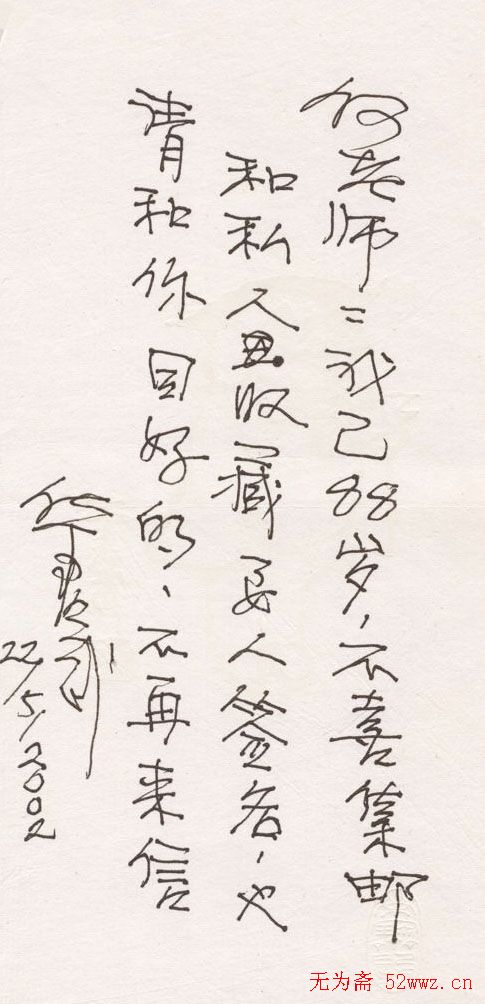 何老师：我已88岁，不喜集邮
和私人收藏要人签名，也
请和你同好的，不再来信
22/5/2002
无为斋 52wwz.cn